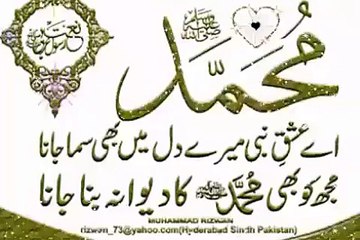 محمد ﷺ
اے عشقِ نبی میرے دل میں بھی سما جانا
مجھ کو بھی محمد ﷺ کا دیوانہ بنا جانا
MUHAMMAD RIZWAN
rizwan_73@yahoo.com(Hyderabad Sindh Pakistan)